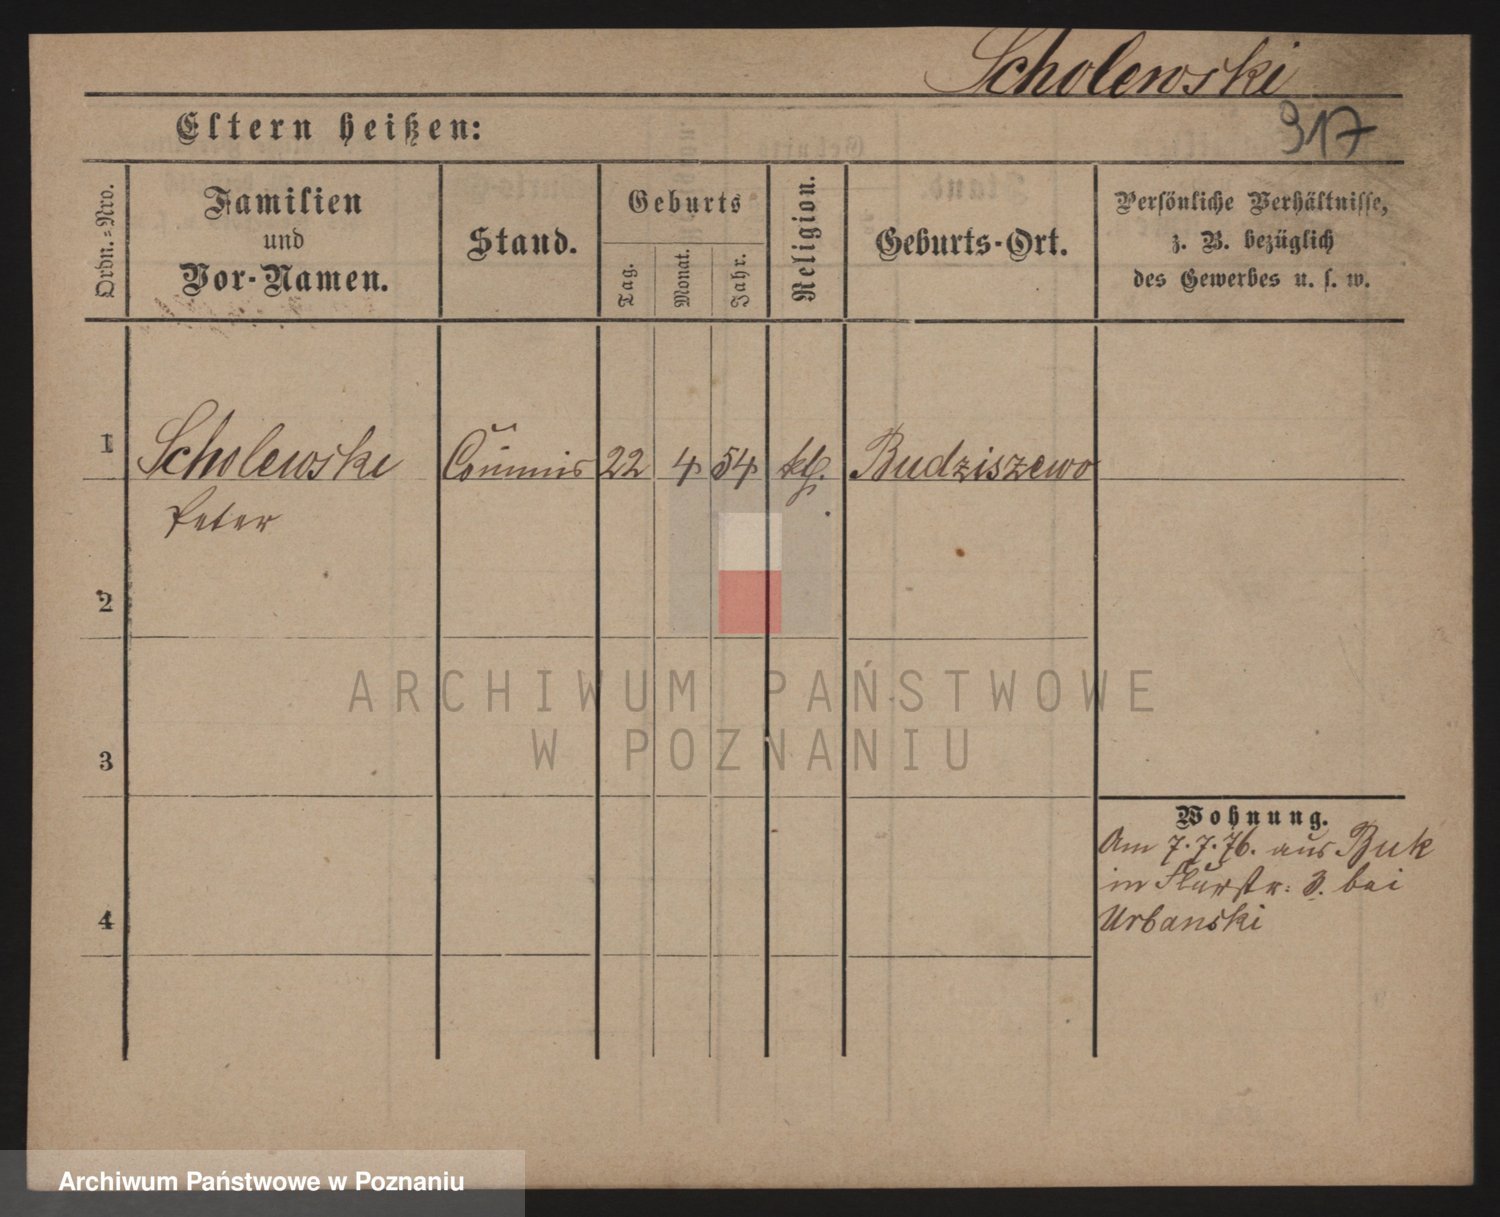 Scholewski
317
Eltern heißen:
Ordn.-Nro.
Familien
und
Vor-Namen.
Stand.
Geburts
Tag.
Monat.
Jahr.
Religion.
Geburts-Ort.
Persönliche Verhältnisse,
z. B. bezüglich
des Gewerbes u. s. w.
1
Scholewski
Peter
Commis
22
4
54
kth.
Budziszewo
2
3
4
Wohnung.
Am 7.7.76. aus Buk
in 3. bei
Urbanski
ARCHIWUM PAŃSTWOWE
W POZNANIU
Archiwum Państwowe w Poznaniu